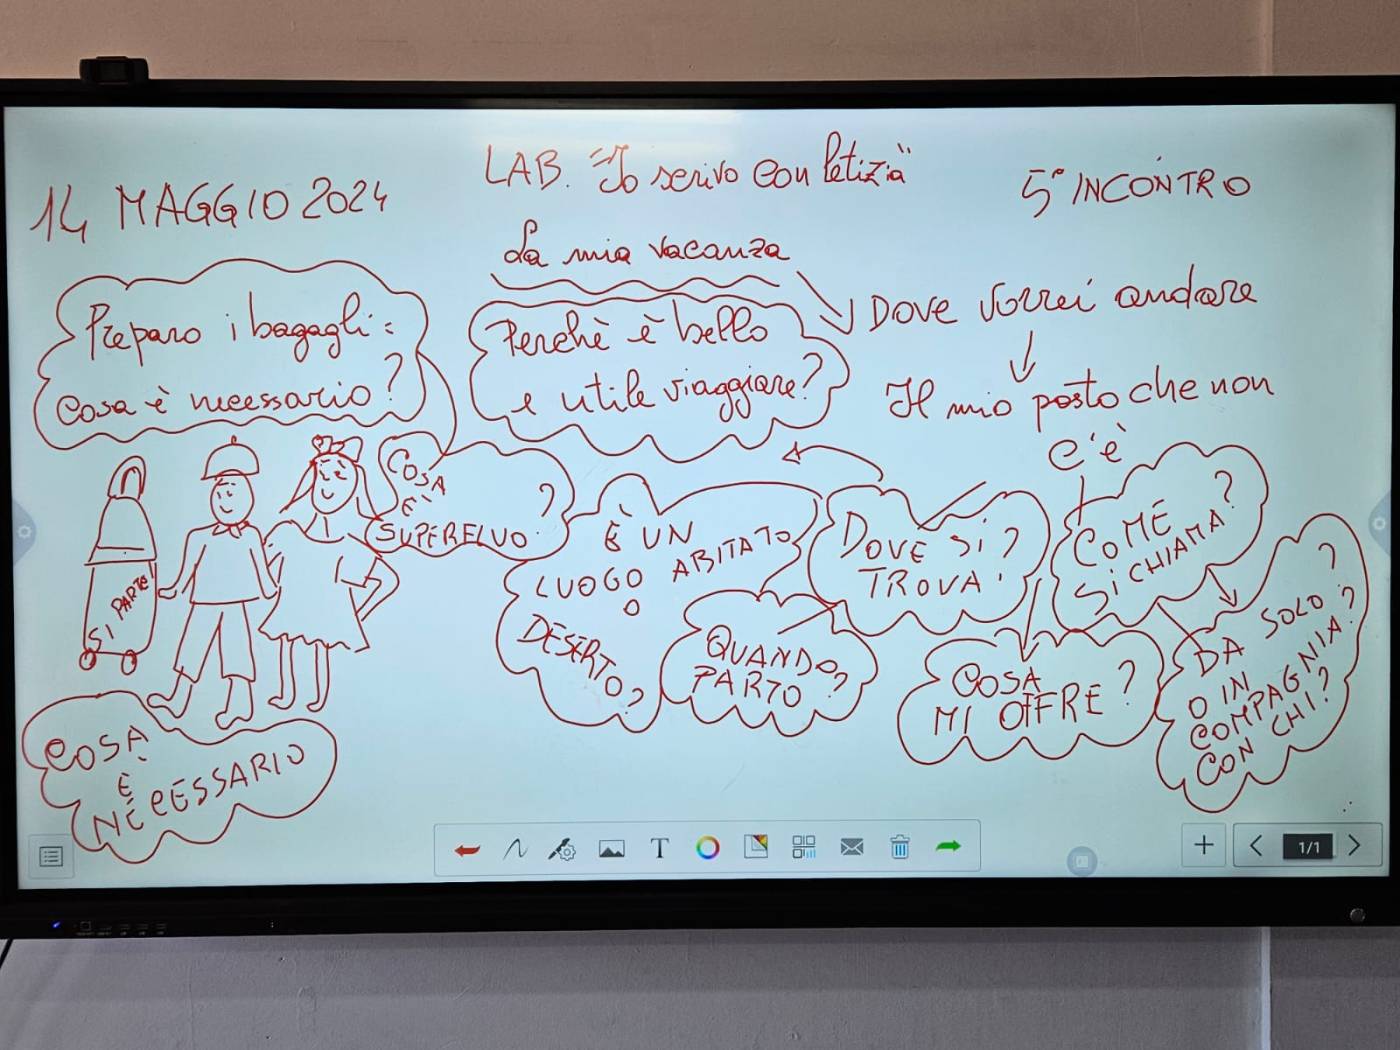 14 MAGGIO 2024
LAB. "Io scrivo con letizia"
5° INCONTRO
La mia vacanza
Preparo i bagagli:
cosa è necessario?
Perchè è bello
e utile viaggiare?
Dove vorrei andare
Il mio posto che non
c'è
COSA
È
SUPERFLUO?
È UN
LUOGO ABITATO
O
DESERTO?
DOVE SI
TROVA?
COME
SI CHIAMA?
SI PARTE
QUANDO
PARTO?
COSA
MI OFFRE?
DA SOLO?
O IN
COMPAGNIA?
CON CHI?
COSA
È
NECESSARIO
T
1/1